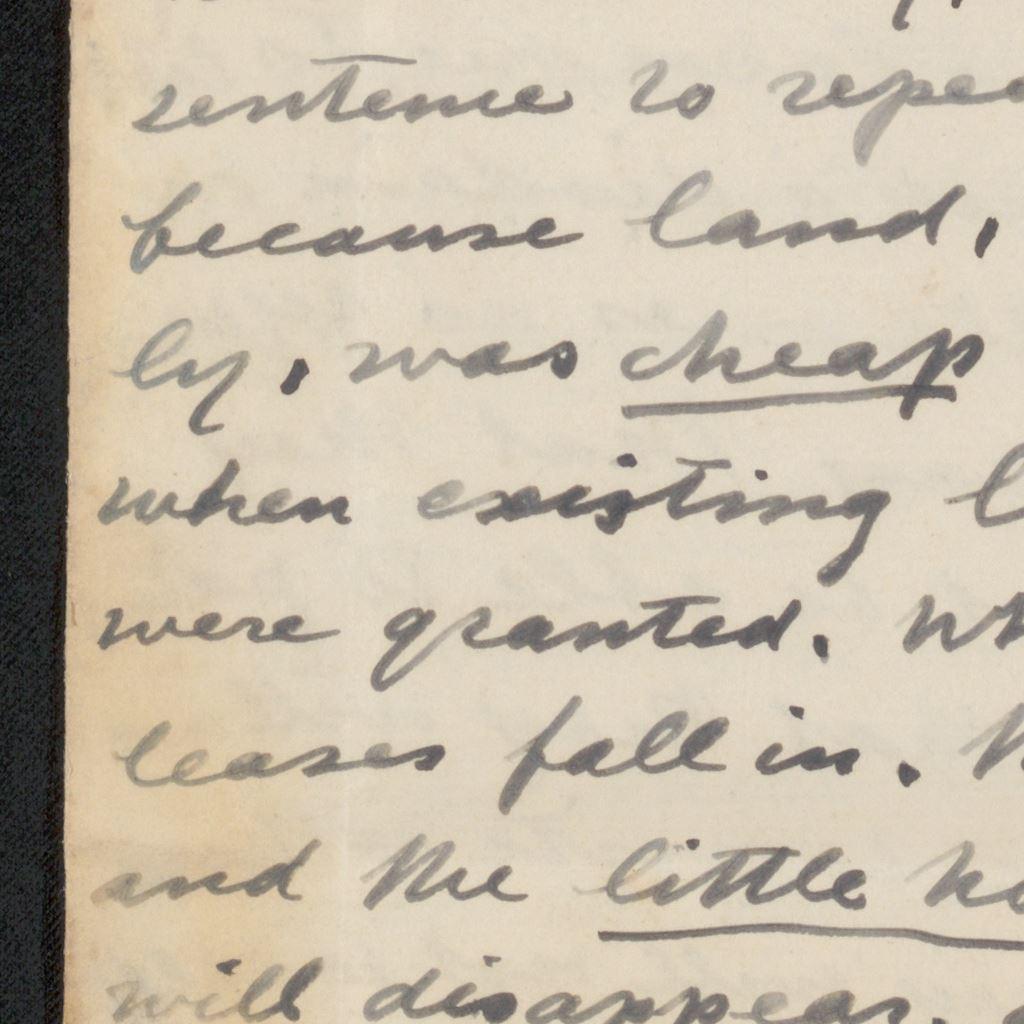 sentence so
because land,
ly, was cheap
when existing
were granted.
leases fall in.
and the little
will disappear,